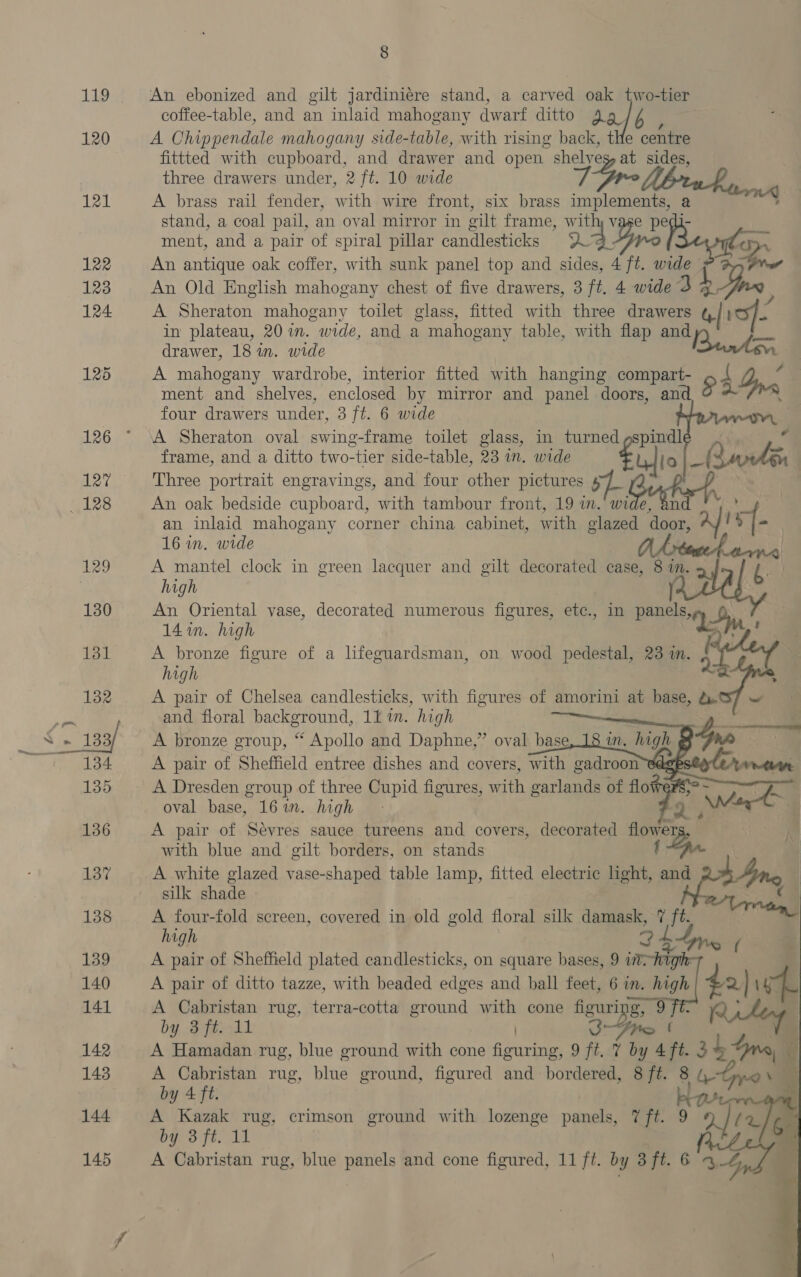 8
119 An ebonized and gilt jardiniére stand, a carved oak two-tier
coffee-table, and an inlaid mahogany dwarf ditto
120 A Chippendale mahogany side-table, with rising back, the centre
fittted with cupboard, and drawer and open shelves, at sides,
three drawers under, 2 ft. 10 wide
121 A brass rail fender, with wire front, six brass implements, a
stand, a coal pail, an oval mirror in gilt frame, with vase pedi-
ment, and a pair of spiral pillar candlesticks
122 An antique oak coffer, with sunk panel top and sides, 4 ft. wide
123 An Old English mahogany chest of five drawers, 3 ft. 4 wide
124 A Sheraton mahogany toilet glass, fitted with three drawers
in plateau, 20 in. wide, and a mahogany table, with flap and
drawer, 18 in. wide
125 A mahogany wardrobe, interior fitted with hanging compart-
ment and shelves, enclosed by mirror and panel doors, and
four drawers under, 3 ft. 6 wide
126 A Sheraton oval swing-frame toilet glass, in turned spindle
frame, and a ditto two-tier side-table, 23 in. wide
127 Three portrait engravings, and four other pictures
128 An oak bedside cupboard, with tambour front, 19 in. wide, and
an inlaid mahogany corner china cabinet, with glazed door,
16 in. wide
129 A mantel clock in green lacquer and gilt decorated case, 8 in.
high
130 An Oriental vase, decorated numerous figures, etc., in panels,
14 in. high
131 A bronze figure of a lifeguardsman, on wood pedestal, 23 in.
high
132 A pair of Chelsea candlesticks, with figures of amorini at base,
and floral background, 11 in. high
133 A bronze group, “ Apollo and Daphne,” oval base, 18 in. high
134 A pair of Sheffield entree dishes and covers, with gadroon edges
135 A Dresden group of three Cupid figures, with garlands of flowers,
oval base, 16 in. high
136 A pair of Sèvres sauce tureens and covers, decorated flowers,
with blue and gilt borders, on stands
137 A white glazed vase-shaped table lamp, fitted electric light, and
silk shade
138 A four-fold screen, covered in old gold floral silk damask, 7 ft.
high
139 A pair of Sheffield plated candlesticks, on square bases, 9 in. high
140 A pair of ditto tazze, with beaded edges and ball feet, 6 in. high
141 A Cabristan rug, terra-cotta ground with cone figuring, 9 ft.
by 3 ft. 11
142 A Hamadan rug, blue ground with cone figuring, 9 ft. 7 by 4 ft. 3
143 A Cabristan rug, blue ground, figured and bordered, 8 ft. 8
by 4 ft.
144 A Kazak rug, crimson ground with lozenge panels, 7 ft. 9
by 3 ft. 11
145 A Cabristan rug, blue panels and cone figured, 11 ft. by 3 ft. 6